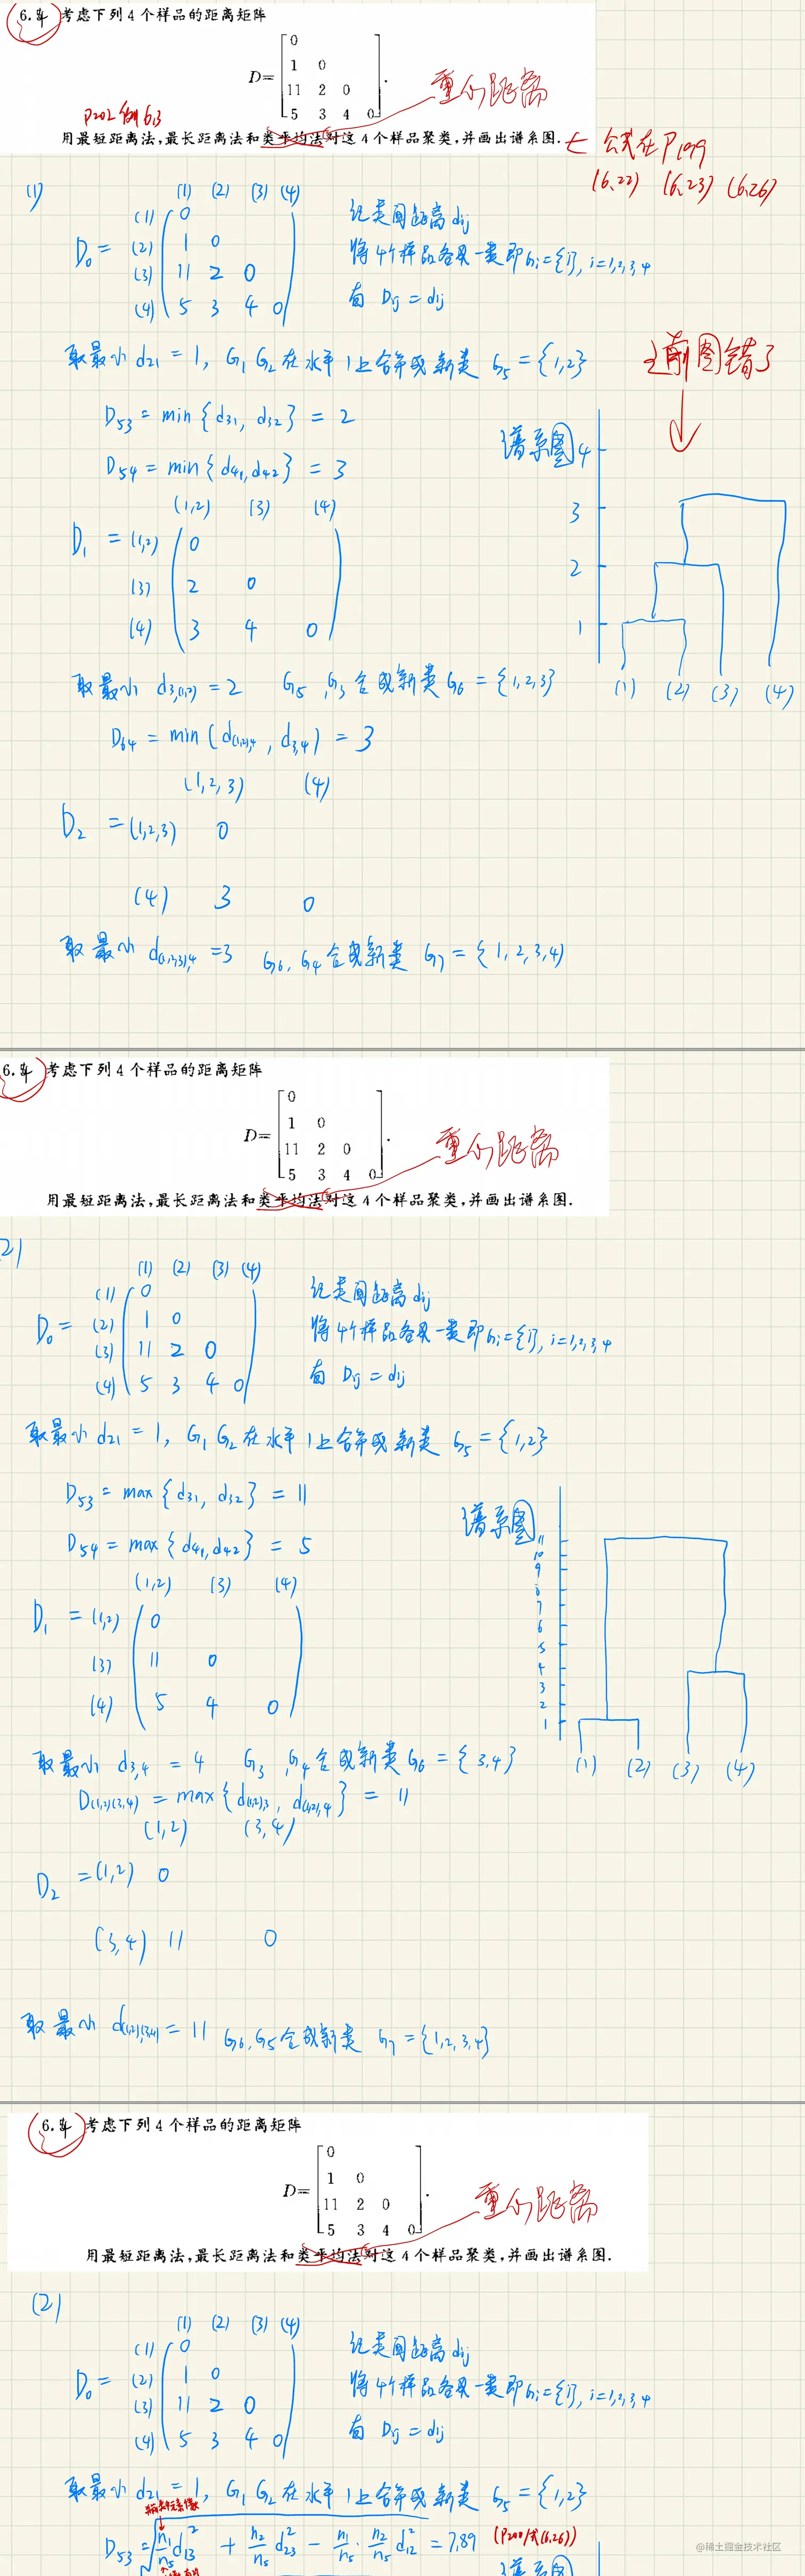 6.4 考虑下列4个样品的距离矩阵
D= [ 0
1 0
11 2 0
5 3 4 0 ].
重心距离
P202 例6.3
用最短距离法,最长距离法和类平均法对这4个样品聚类,并画出谱系图.
← 公式在P199
(6.22) (6.23) (6.26)
(1)
(1) (2) (3) (4)
D₀ = (1) 0
(2) 1 0
(3) 11 2 0
(4) 5 3 4 0
记类间距离dij
将4个样品各风一类即Gi={i}, i=1,2,3,4
有 Dij = dij
取最小 d21 = 1, G1 G2 在水平1上合并成新类 G5 = {1,2}
之前图错了
D53 = min{d31, d32} = 2
D54 = min{d41, d42} = 3
谱系图
4
3
2
1
(1) (2) (3) (4)
(1,2) (3) (4)
D₁ = (1,2) 0
(3) 2 0
(4) 3 4 0
取最小 d3,(1,2) = 2 G5, G3 合成新类 G6 = {1,2,3}
D64 = min(d(1,2),4, d3,4) = 3
(1,2,3) (4)
D₂ = (1,2,3) 0
(4) 3 0
取最小 d(1,2,3),4 = 3 G6, G4 合成新类 G7 = {1,2,3,4}
6.4 考虑下列4个样品的距离矩阵
D= [ 0
1 0
11 2 0
5 3 4 0 ].
重心距离
用最短距离法,最长距离法和类平均法对这4个样品聚类,并画出谱系图.
2)
(1) (2) (3) (4)
D₀ = (1) 0
(2) 1 0
(3) 11 2 0
(4) 5 3 4 0
记类间距离dij
将4个样品各风一类即Gi={i}, i=1,2,3,4
有 Dij = dij
取最小 d21 = 1, G1 G2 在水平1上合并成新类 G5 = {1,2}
D53 = max{d31, d32} = 11
D54 = max{d41, d42} = 5
谱系图
11
10
9
8
7
6
5
4
3
2
1
(1) (2) (3) (4)
(1,2) (3) (4)
D₁ = (1,2) 0
(3) 11 0
(4) 5 4 0
取最小 d3,4 = 4 G3, G4 合成新类 G6 = {3,4}
D(1,2)(3,4) = max{d(1,2),3, d(1,2),4} = 11
(1,2) (3,4)
D₂ = (1,2) 0
(3,4) 11 0
取最小 d(1,2)(3,4) = 11 G6, G5 合成新类 G7 = {1,2,3,4}
6.4 考虑下列4个样品的距离矩阵
D= [ 0
1 0
11 2 0
5 3 4 0 ].
重心距离
用最短距离法,最长距离法和类平均法对这4个样品聚类,并画出谱系图.
(2)
(1) (2) (3) (4)
D₀ = (1) 0
(2) 1 0
(3) 11 2 0
(4) 5 3 4 0
记类间距离dij
将4个样品各风一类即Gi={i}, i=1,2,3,4
有 Dij = dij
取最小 d21 = 1, G1 G2 在水平1上合并成新类 G5 = {1,2}
D53 = √ n1/n5 d13² + n2/n5 d23² − n1/n5 · n2/n5 d12² = 7.89 (P200/式(6.26))
@稀土掘金技术社区